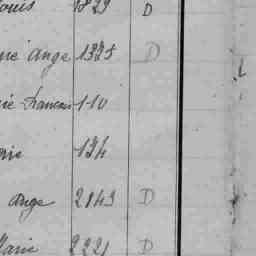 ouis 1329 D
ne ange 1325 D
ie francois 110
rie 134
ange 2143 D
Marie 2221 D